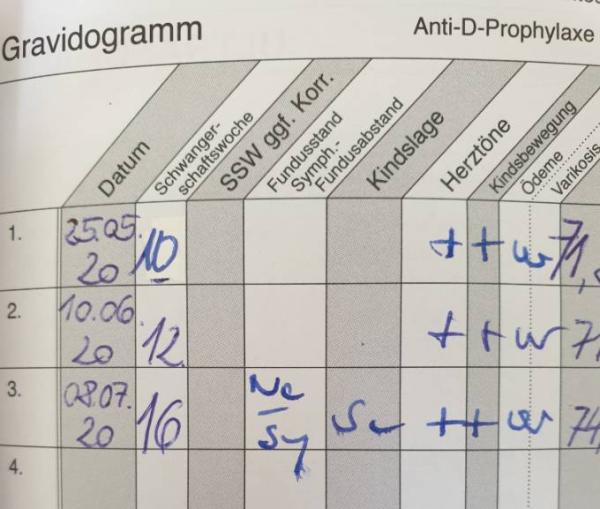 Gravidogramm
Anti-D-Prophylaxe
Datum
Schwanger-
schaftswoche
SSW ggf. Korr.
Fundusstand
Symph.-
Fundusabstand
Kindslage
Herztöne
Kindsbewegung
Ödeme
Varikosis
1. 25.05. 10 + + 71,
20
2. 10.06 12 + + 71
20
3. 08.07. 16 Ne + + 74
20 Sy
4.